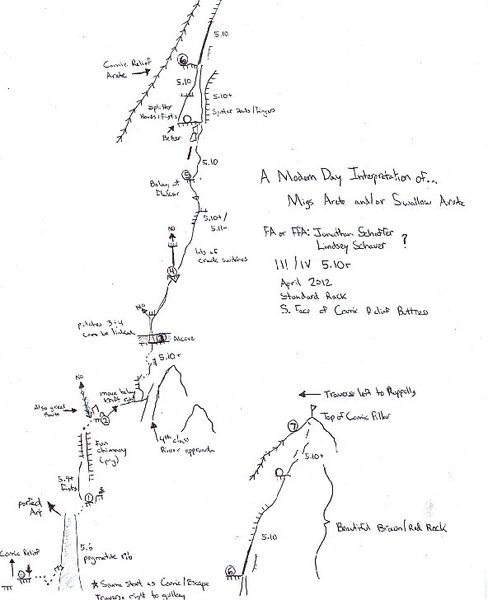 5.10
Comic Relief
Arete
6
5.10
5.10+
Splitter
Hands/Fists
Splitter Hands/Fingers
Belay
5.10
5
Belay at
5.10+/
5.11-
A Modern Day Interpretation of...
Migs Arete and/or Swallow Arete
FA or FFA: Jonathan Schaffer
Lindsey Schauer
?
III/IV 5.10+
April 2012
Standard Rack
S. Face of Comic Relief Buttress
NO
lots of
crack switches
4
NO
pitches 3+4
can be linked
3
Alcove
5.10+
NO
Also great
Route
move belay
right
2
4th class
River approach
Fun
chimney
(pg)
5.9+
Fists
1
perfect
Art
Comic Relief
0
5.6
pegmatite rib
* Same start as Comic/Escape
Traverse right to gulley
← Traverse left to Ruppells
Top of Comic Pillar
7
5.10+
Beautiful Brown/Red Rock
5.10
6